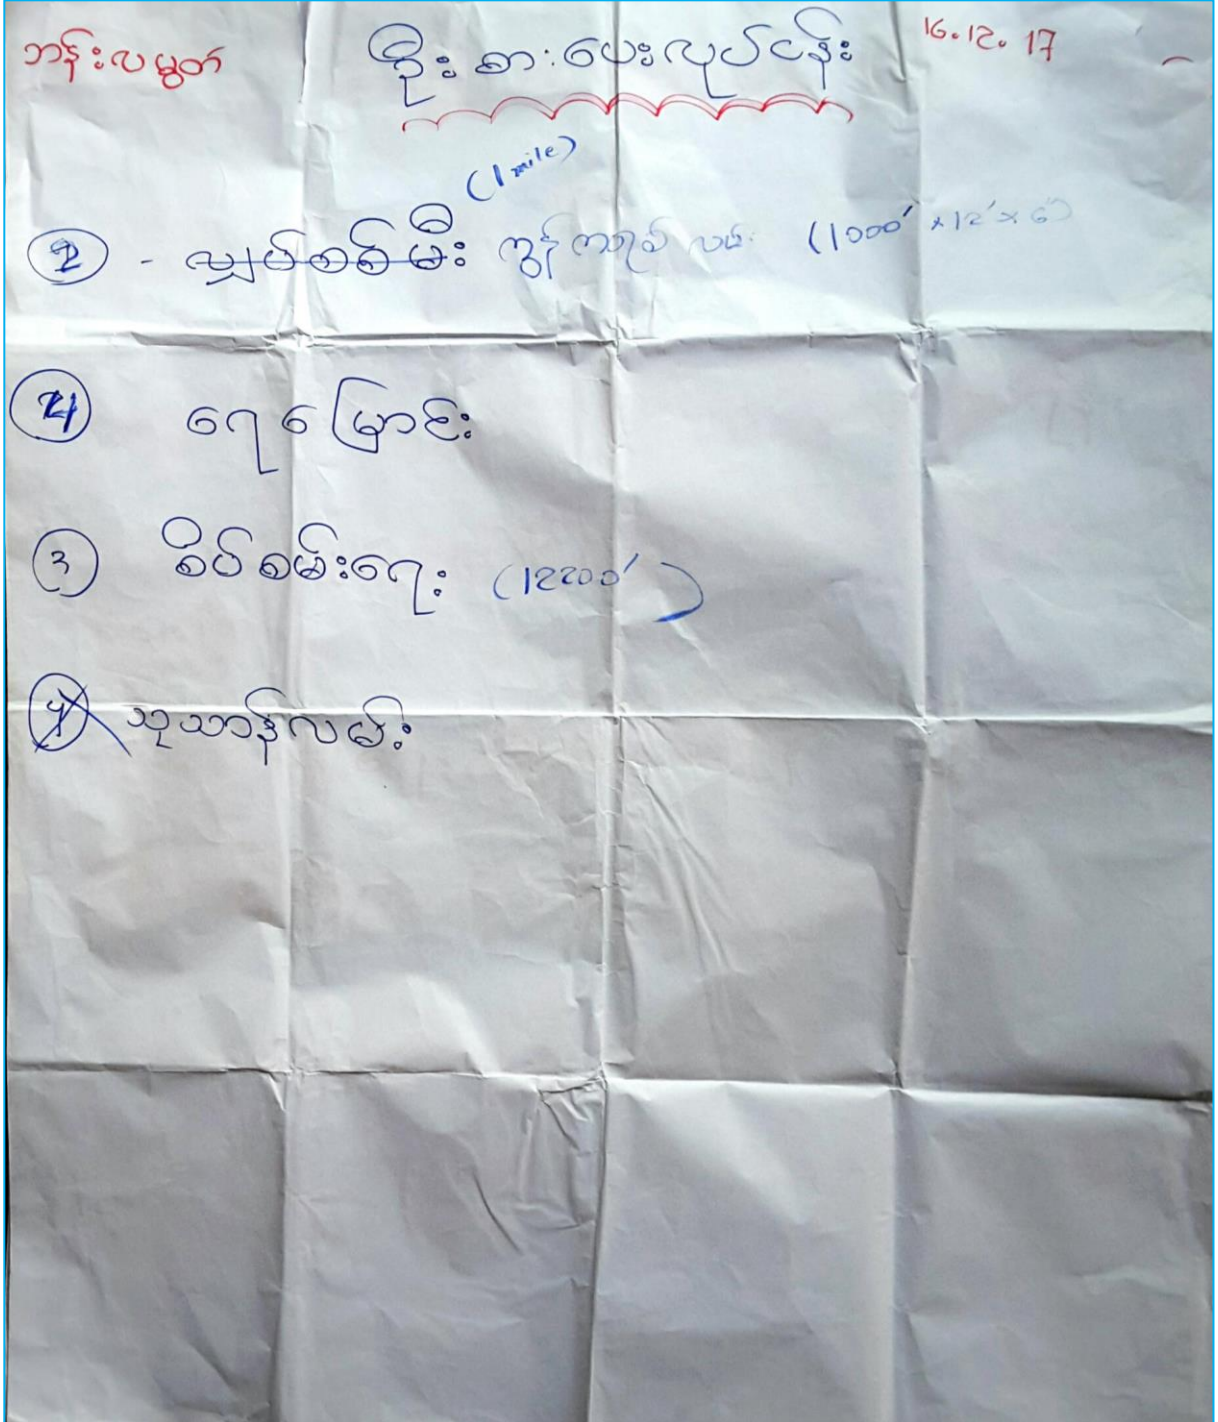 ဘန်းလမွတ် ဦးစားပေးလုပ်ငန်း 16.12.17
(1 mile)
2 - လျှပ်စစ်မီး ကွန်ကရစ် လမ်း (1000' x 12' x 6")
4 ရေမြောင်း
3 စိပ်စမ်းရေး (12200')
သုသာန်လမ်း